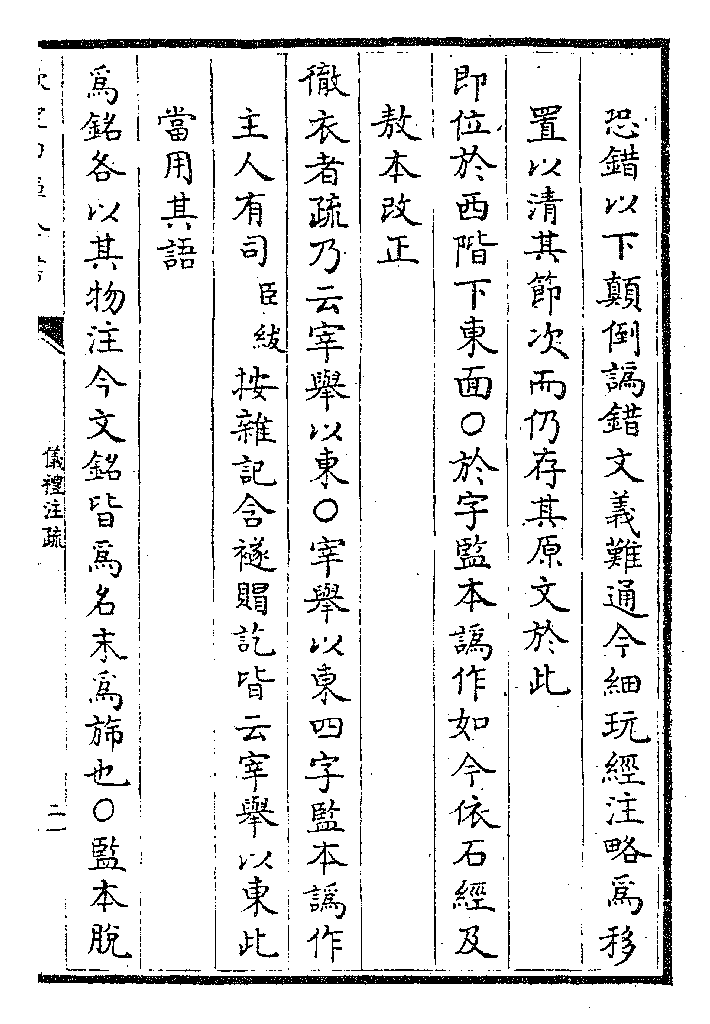 恐錯以下顛倒譌錯文義難通今細玩經注略爲移
置以清其節次而仍存其原文於此
即位於西階下東面〇於字監本譌作如今依石經及
敖本改正
徹衣者疏乃云宰舉以東〇宰舉以東四字監本譌作
主人有司臣紱按雜記含襚賵訖皆云宰舉以東此
當用其語
爲銘各以其物注今文銘皆爲名末爲旆也〇監本脫
儀禮注疏
二